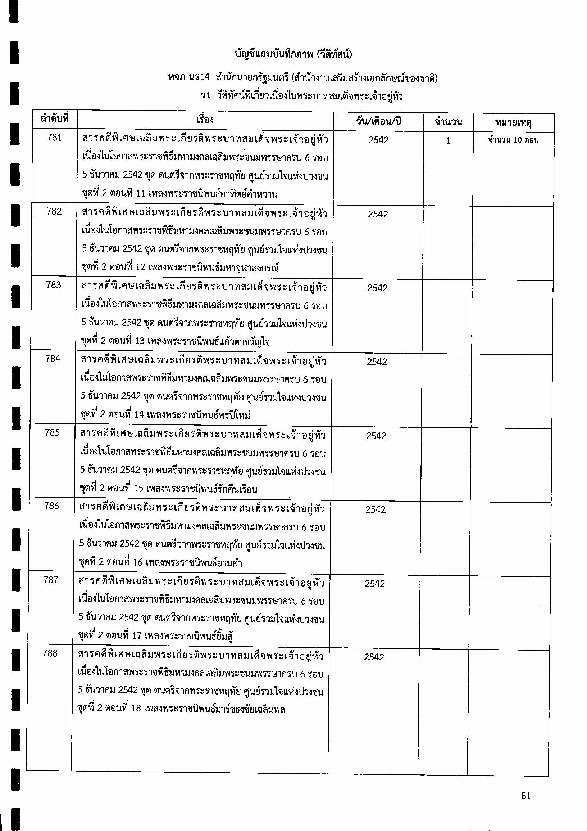 บัญชีแถบบันทึกภาพ (วีดิทัศน์)
หจภ นร14 สำนักนายกรัฐมนตรี (สำนักงานเสริมสร้างเอกลักษณ์ของชาติ)
ว1 วีดิทัศน์ที่เกี่ยวเนื่องในพระบาทสมเด็จพระเจ้าอยู่หัว
ลำดับที่ เรื่อง วัน/เดือน/ปี จำนวน หมายเหตุ
781 สารคดีพิเศษเฉลิมพระเกียรติพระบาทสมเด็จพระเจ้าอยู่หัว 2542 1 จำนวน 10 ตอน
เนื่องในโอกาสพระราชพิธีมหามงคลเฉลิมพระชนมพรรษาครบ 6 รอบ
5 ธันวาคม 2542 ชุด ดนตรีจากพระราชหฤทัย ศูนย์รวมใจแห่งปวงชน
ชุดที่ 2 ตอนที่ 11 เพลงพระราชนิพนธ์อาทิตย์อับแสง
782 สารคดีพิเศษเฉลิมพระเกียรติพระบาทสมเด็จพระเจ้าอยู่หัว 2542
เนื่องในโอกาสพระราชพิธีมหามงคลเฉลิมพระชนมพรรษาครบ 6 รอบ
5 ธันวาคม 2542 ชุด ดนตรีจากพระราชหฤทัย ศูนย์รวมใจแห่งปวงชน
ชุดที่ 2 ตอนที่ 12 เพลงพระราชนิพนธ์มหาจุฬาลงกรณ์
783 สารคดีพิเศษเฉลิมพระเกียรติพระบาทสมเด็จพระเจ้าอยู่หัว 2542
เนื่องในโอกาสพระราชพิธีมหามงคลเฉลิมพระชนมพรรษาครบ 6 รอบ
5 ธันวาคม 2542 ชุด ดนตรีจากพระราชหฤทัย ศูนย์รวมใจแห่งปวงชน
ชุดที่ 2 ตอนที่ 13 เพลงพระราชนิพนธ์แก้วตาขวัญใจ
784 สารคดีพิเศษเฉลิมพระเกียรติพระบาทสมเด็จพระเจ้าอยู่หัว 2542
เนื่องในโอกาสพระราชพิธีมหามงคลเฉลิมพระชนมพรรษาครบ 6 รอบ
5 ธันวาคม 2542 ชุด ดนตรีจากพระราชหฤทัย ศูนย์รวมใจแห่งปวงชน
ชุดที่ 2 ตอนที่ 14 เพลงพระราชนิพนธ์พรปีใหม่
785 สารคดีพิเศษเฉลิมพระเกียรติพระบาทสมเด็จพระเจ้าอยู่หัว 2542
เนื่องในโอกาสพระราชพิธีมหามงคลเฉลิมพระชนมพรรษาครบ 6 รอบ
5 ธันวาคม 2542 ชุด ดนตรีจากพระราชหฤทัย ศูนย์รวมใจแห่งปวงชน
ชุดที่ 2 ตอนที่ 15 เพลงพระราชนิพนธ์รักคืนเรือน
786 สารคดีพิเศษเฉลิมพระเกียรติพระบาทสมเด็จพระเจ้าอยู่หัว 2542
เนื่องในโอกาสพระราชพิธีมหามงคลเฉลิมพระชนมพรรษาครบ 6 รอบ
5 ธันวาคม 2542 ชุด ดนตรีจากพระราชหฤทัย ศูนย์รวมใจแห่งปวงชน
ชุดที่ 2 ตอนที่ 16 เพลงพระราชนิพนธ์ยามค่ำ
787 สารคดีพิเศษเฉลิมพระเกียรติพระบาทสมเด็จพระเจ้าอยู่หัว 2542
เนื่องในโอกาสพระราชพิธีมหามงคลเฉลิมพระชนมพรรษาครบ 6 รอบ
5 ธันวาคม 2542 ชุด ดนตรีจากพระราชหฤทัย ศูนย์รวมใจแห่งปวงชน
ชุดที่ 2 ตอนที่ 17 เพลงพระราชนิพนธ์ยิ้มสู้
788 สารคดีพิเศษเฉลิมพระเกียรติพระบาทสมเด็จพระเจ้าอยู่หัว 2542
เนื่องในโอกาสพระราชพิธีมหามงคลเฉลิมพระชนมพรรษาครบ 6 รอบ
5 ธันวาคม 2542 ชุด ดนตรีจากพระราชหฤทัย ศูนย์รวมใจแห่งปวงชน
ชุดที่ 2 ตอนที่ 18 เพลงพระราชนิพนธ์มาร์ชธงชัยเฉลิมพล
61